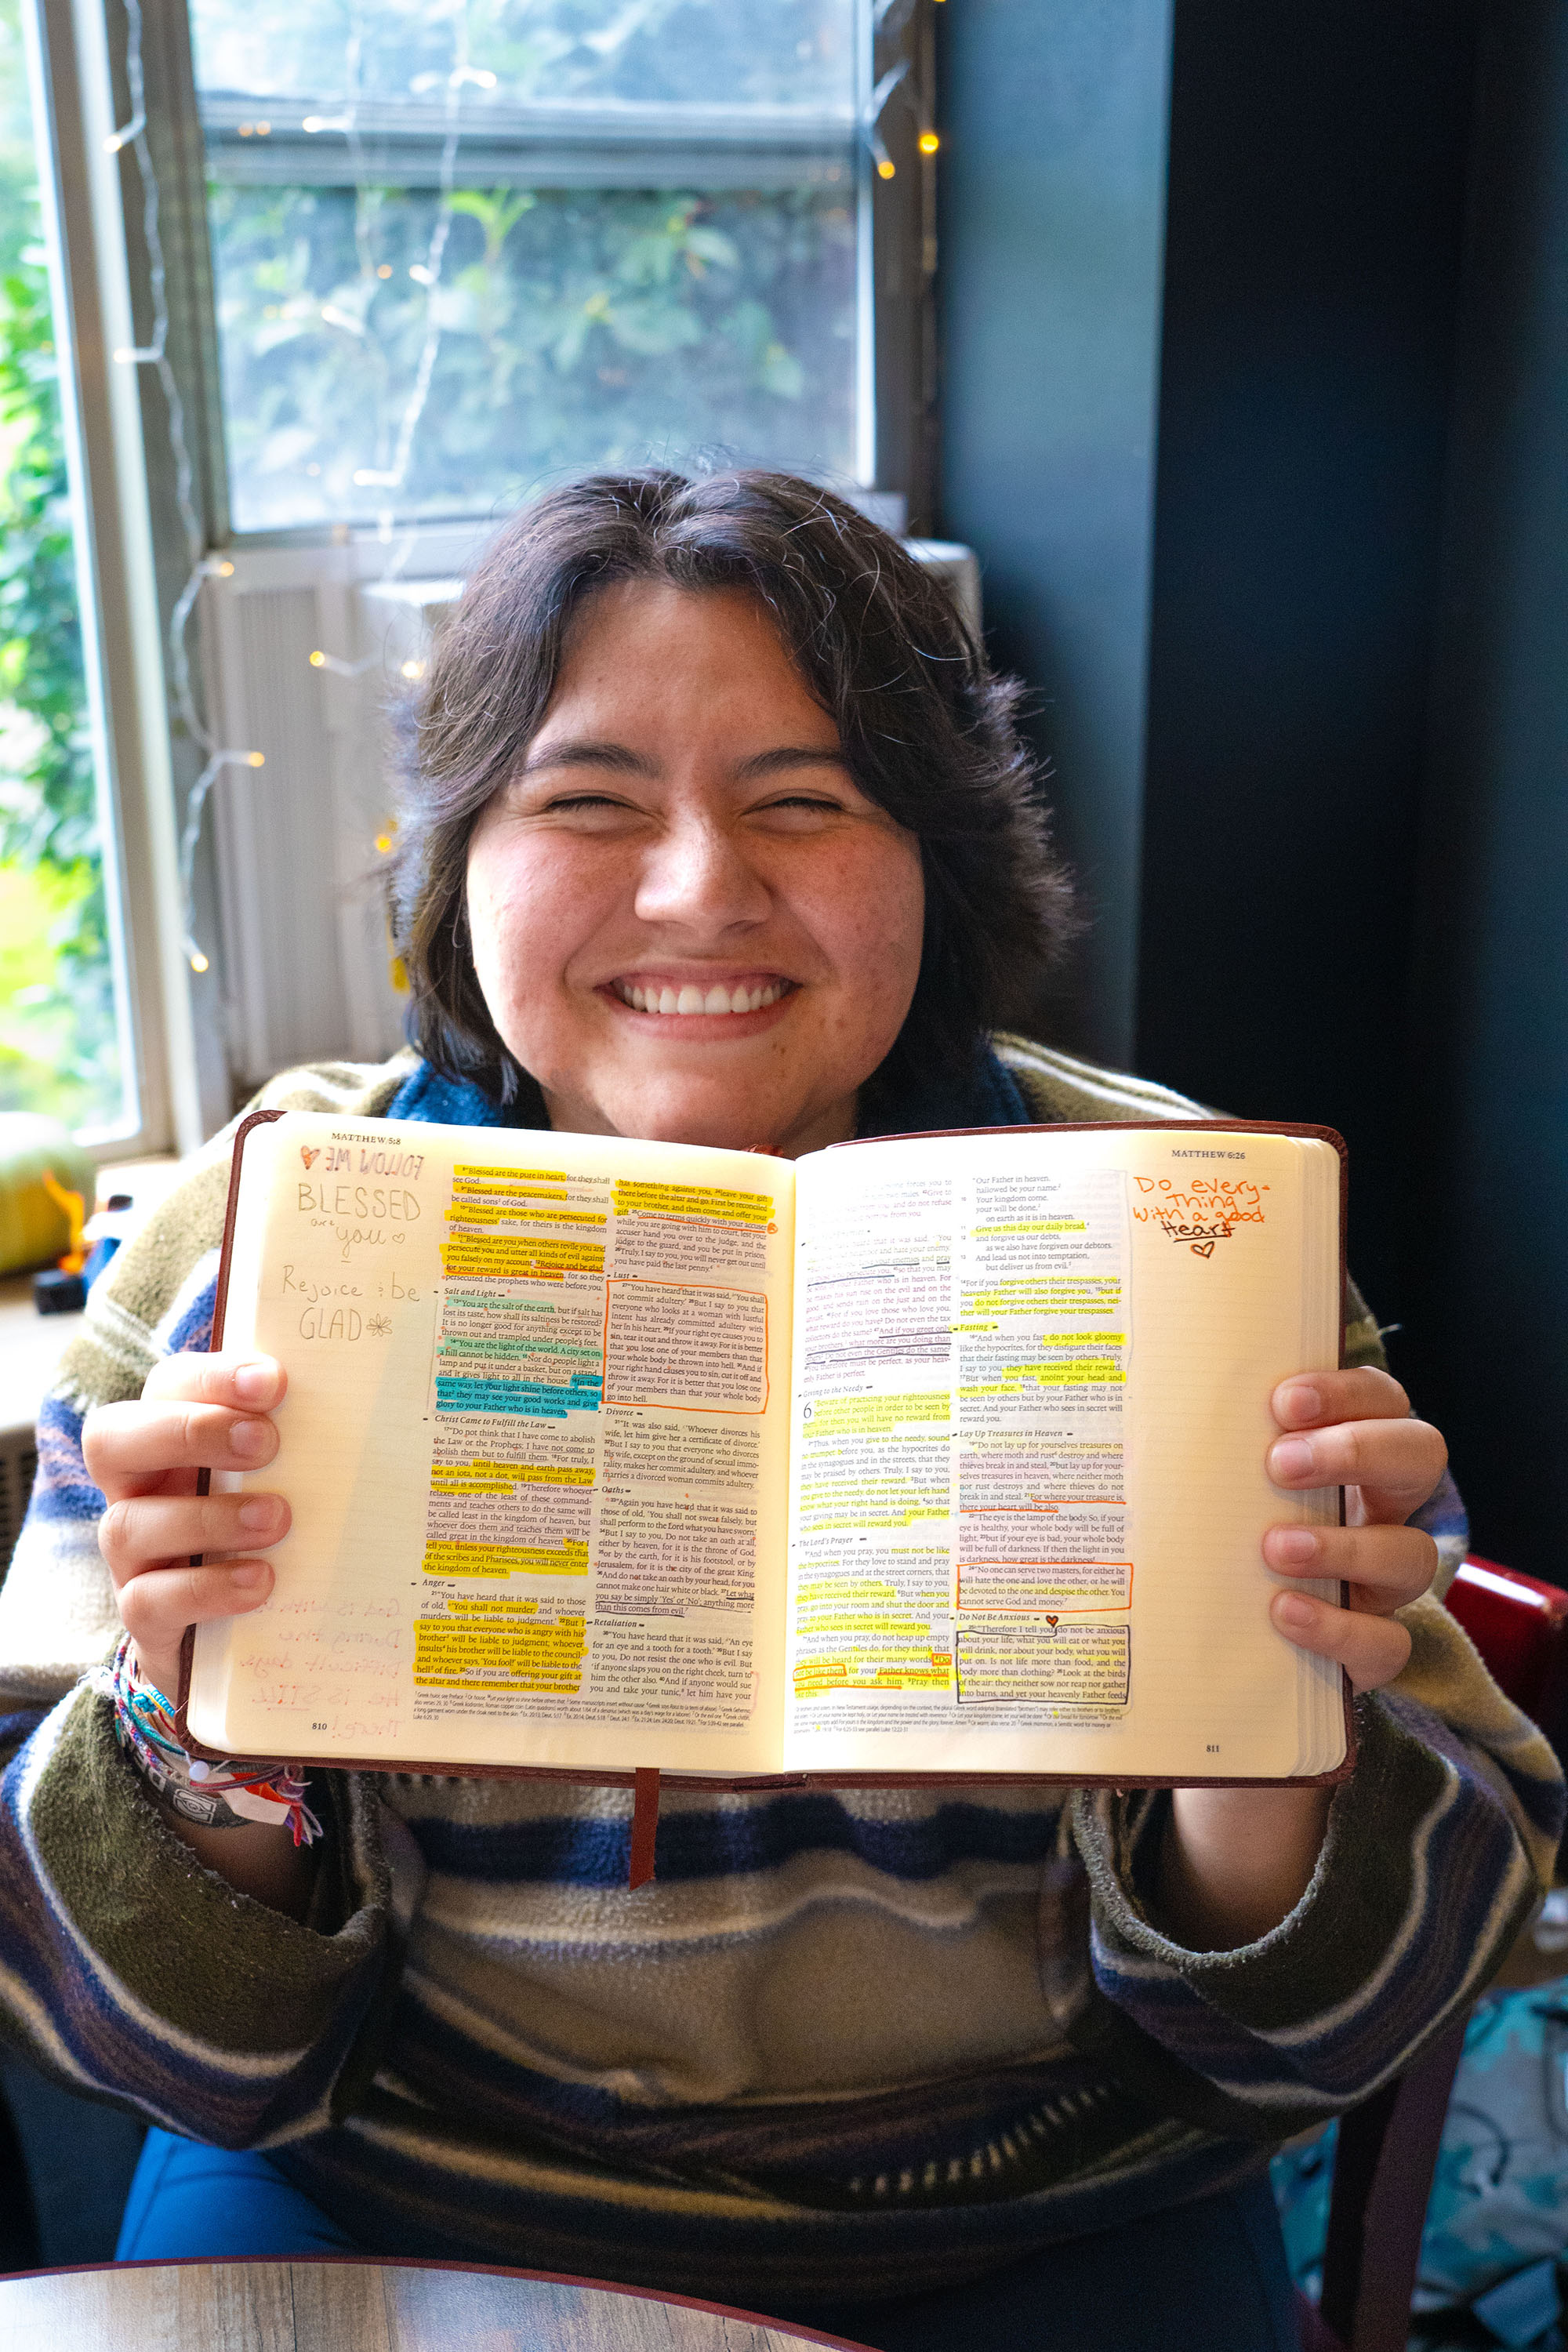 MATTHEW 5:8
FOLLOW ME
BLESSED
are
you
Rejoice : be
GLAD
8 "Blessed are the pure in heart, for they shall
see God.
9 "Blessed are the peacemakers, for they shall
be called sons of God.
10 "Blessed are those who are persecuted for
righteousness' sake, for theirs is the kingdom
of heaven.
11 "Blessed are you when others revile you and
persecute you and utter all kinds of evil against
you falsely on my account. 12 Rejoice and be glad,
for your reward is great in heaven, for so they
persecuted the prophets who were before you.
Salt and Light
13 "You are the salt of the earth, but if salt has
lost its taste, how shall its saltiness be restored?
It is no longer good for anything except to be
thrown out and trampled under people's feet.
14 "You are the light of the world. A city set on
a hill cannot be hidden. 15 Nor do people light a
lamp and put it under a basket, but on a stand,
and it gives light to all in the house. 16 In the
same way, let your light shine before others, so
that they may see your good works and give
glory to your Father who is in heaven.
Christ Came to Fulfill the Law
17 "Do not think that I have come to abolish
the Law or the Prophets; I have not come to
abolish them but to fulfill them. 18 For truly, I
say to you, until heaven and earth pass away,
not an iota, not a dot, will pass from the Law
until all is accomplished. 19 Therefore whoever
relaxes one of the least of these command-
ments and teaches others to do the same will
be called least in the kingdom of heaven, but
whoever does them and teaches them will be
called great in the kingdom of heaven. 20 For I
tell you, unless your righteousness exceeds that
of the scribes and Pharisees, you will never enter
the kingdom of heaven.
Anger
21 "You have heard that it was said to those
of old, 'You shall not murder; and whoever
murders will be liable to judgment.' 22 But I
say to you that everyone who is angry with his
brother will be liable to judgment; whoever
insults his brother will be liable to the council;
and whoever says, 'You fool!' will be liable to the
hell of fire. 23 So if you are offering your gift at
the altar and there remember that your brother
has something against you, 24 leave your gift
there before the altar and go. First be reconciled
to your brother, and then come and offer your
gift. 25 Come to terms quickly with your accuser
while you are going with him to court, lest your
accuser hand you over to the judge, and the
judge to the guard, and you be put in prison.
26 Truly, I say to you, you will never get out until
you have paid the last penny.
Lust
27 "You have heard that it was said, 'You shall
not commit adultery.' 28 But I say to you that
everyone who looks at a woman with lustful
intent has already committed adultery with
her in his heart. 29 If your right eye causes you to
sin, tear it out and throw it away. For it is better
that you lose one of your members than that
your whole body be thrown into hell. 30 And if
your right hand causes you to sin, cut it off and
throw it away. For it is better that you lose one
of your members than that your whole body
go into hell.
Divorce
31 "It was also said, 'Whoever divorces his
wife, let him give her a certificate of divorce.'
32 But I say to you that everyone who divorces
his wife, except on the ground of sexual immo-
rality, makes her commit adultery, and whoever
marries a divorced woman commits adultery.
Oaths
33 "Again you have heard that it was said to
those of old, 'You shall not swear falsely, but
shall perform to the Lord what you have sworn.'
34 But I say to you, Do not take an oath at all,
either by heaven, for it is the throne of God,
35 or by the earth, for it is his footstool, or by
Jerusalem, for it is the city of the great King.
36 And do not take an oath by your head, for you
cannot make one hair white or black. 37 Let what
you say be simply 'Yes' or 'No'; anything more
than this comes from evil.
Retaliation
38 "You have heard that it was said, 'An eye
for an eye and a tooth for a tooth.' 39 But I say
to you, Do not resist the one who is evil. But
if anyone slaps you on the right cheek, turn to
him the other also. 40 And if anyone would sue
you and take your tunic, let him have your
810
MATTHEW 6:26
Do every-
Thing
With a good
Heart
hate your enemy.
and pray
so that you may
Father who is in heaven. For
sun rise on the evil and on the
and sends rain on the just and on the
For if you love those who love you,
what reward do you have? Do not even the tax
collectors do the same? 47 And if you greet only
your brothers, what more are you doing than
Do not even the Gentiles do the same?
You therefore must be perfect, as your heav-
enly Father is perfect.
Giving to the Needy
6 "Beware of practicing your righteousness
before other people in order to be seen by
them, for then you will have no reward from
your Father who is in heaven.
2 "Thus, when you give to the needy, sound
no trumpet before you, as the hypocrites do
in the synagogues and in the streets, that they
may be praised by others. Truly, I say to you,
they have received their reward. 3 But when
you give to the needy, do not let your left hand
know what your right hand is doing, 4 so that
your giving may be in secret. And your Father
who sees in secret will reward you.
The Lord's Prayer
5 "And when you pray, you must not be like
the hypocrites. For they love to stand and pray
in the synagogues and at the street corners, that
they may be seen by others. Truly, I say to you,
they have received their reward. 6 But when you
pray, go into your room and shut the door and
pray to your Father who is in secret. And your
Father who sees in secret will reward you.
7 "And when you pray, do not heap up empty
phrases as the Gentiles do, for they think that
they will be heard for their many words. 8 Do
not be like them, for your Father knows what
you need before you ask him. 9 Pray then
like this:
"Our Father in heaven,
hallowed be your name.
10 Your kingdom come,
your will be done,
on earth as it is in heaven.
11 Give us this day our daily bread,
12 and forgive us our debts,
as we also have forgiven our debtors.
13 And lead us not into temptation,
but deliver us from evil.
14 For if you forgive others their trespasses, your
heavenly Father will also forgive you, 15 but if
you do not forgive others their trespasses, nei-
ther will your Father forgive your trespasses.
Fasting
16 "And when you fast, do not look gloomy
like the hypocrites, for they disfigure their faces
that their fasting may be seen by others. Truly,
I say to you, they have received their reward.
17 But when you fast, anoint your head and
wash your face, 18 that your fasting may not
be seen by others but by your Father who is in
secret. And your Father who sees in secret will
reward you.
Lay Up Treasures in Heaven
19 "Do not lay up for yourselves treasures on
earth, where moth and rust destroy and where
thieves break in and steal, 20 but lay up for your-
selves treasures in heaven, where neither moth
nor rust destroys and where thieves do not
break in and steal. 21 For where your treasure is,
there your heart will be also.
22 "The eye is the lamp of the body. So, if your
eye is healthy, your whole body will be full of
light, 23 but if your eye is bad, your whole body
will be full of darkness. If then the light in you
is darkness, how great is the darkness!
24 "No one can serve two masters, for either he
will hate the one and love the other, or he will
be devoted to the one and despise the other. You
cannot serve God and money.
Do Not Be Anxious
25 "Therefore I tell you, do not be anxious
about your life, what you will eat or what you
will drink, nor about your body, what you will
put on. Is not life more than food, and the
body more than clothing? 26 Look at the birds
of the air: they neither sow nor reap nor gather
into barns, and yet your heavenly Father feeds
811